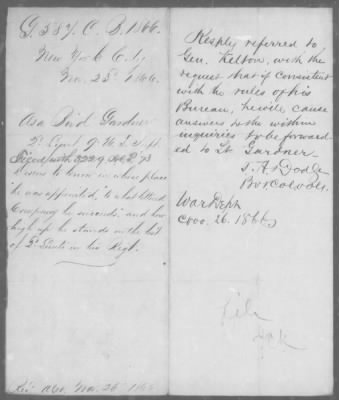 G. 587. C. B. 1866.
New York City
Nov. 23d 1866.
Asa Bird Gardner
2d Lieut 9 U.S. Inft.
Filed with 3229
Desires to know in whose place
he was appointed, to what lettered
Company he succeeds and how
high up he stands in the list
of 2d Lieuts in his Regt.
Nov. 26 1866
Resply referred to
Gen. Kelton, with the
request that if consistent
with the rules of his
Bureau, he will cause
answers to the within
inquiries to be forward-
ed to Lt Gardner.
T. A. Dodge
War Dept.
Nov. 26. 1866
File